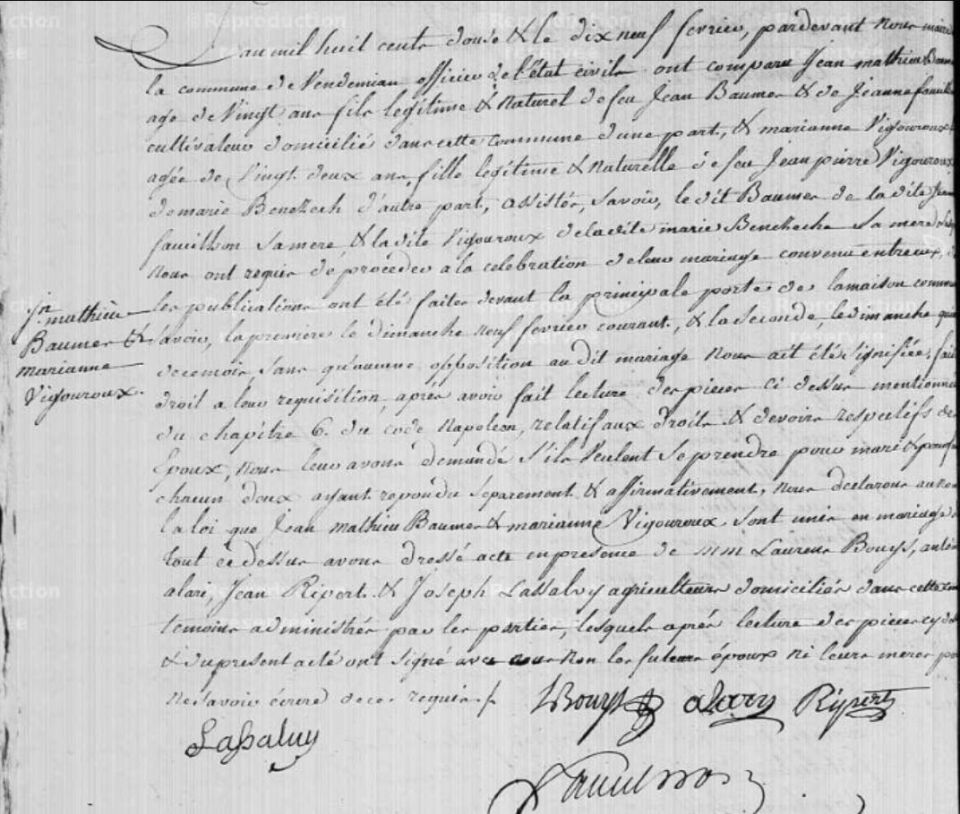 L'an mil huit cents douse & le dix neuf fevrier, pardevant nous maire
la commune de Vendemian officier de l'état civile ont comparu Jean mathieu Baum
age de Vingt ans fils legitime & Naturel de feu Jean Baumes & de Jeanne
cultivateur domicilié dans cette commune d'une part, & marianne Vigouroux
agée de Vingt deux ans, fille legitime & Naturelle de feu Jean pierre Vigouroux
de marie Beneckech d'autre part, assistés, savoir, le dit Baumes de la dite Jeanne
sa mere & la dite Vigouroux de la dite marie Beneckeche Sa mere
Nous ont requis de procéder a la celebration de leur mariage convenu entreux,
les publications ont été faites devant la principale porte de la maison commu
savoir, la premiere le dimanche neuf fevrier courant, & la seconde, le dimanche
de ce mois, sans qu'aucune opposition au dit mariage Nous ait été signifiée, fais
droit a leur requisition, après avoir fait lecture des pieces ci dessus mentionnées
du chapitre 6. du code Napoleon, relatif aux droits & devoirs respectifs des
Epoux, Nous leur avons demandé s'ils Veulent se prendre pour mari & pour
chacun deux ayant repondu separement & affirmativement, Nous declarons au nom
la loi que Jean mathieu Baumes & marianne Vigouroux sont unis en mariage
tout ce dessus avons dressé acte en presence de MM Laurens Bouys,
alari, Jean Ripert & Joseph Lassalvy agriculteurs domiciliés dans cette
temoins administrés par les parties, lesquels après lecture des pieces
& du present acte ont signé avec nous Non les futurs époux ni leurs meres
ne savoir écrire de ce requis
Jn mathieu
Baumes &
marianne
Vigouroux
LBouys alary Ripert
Lassalvy